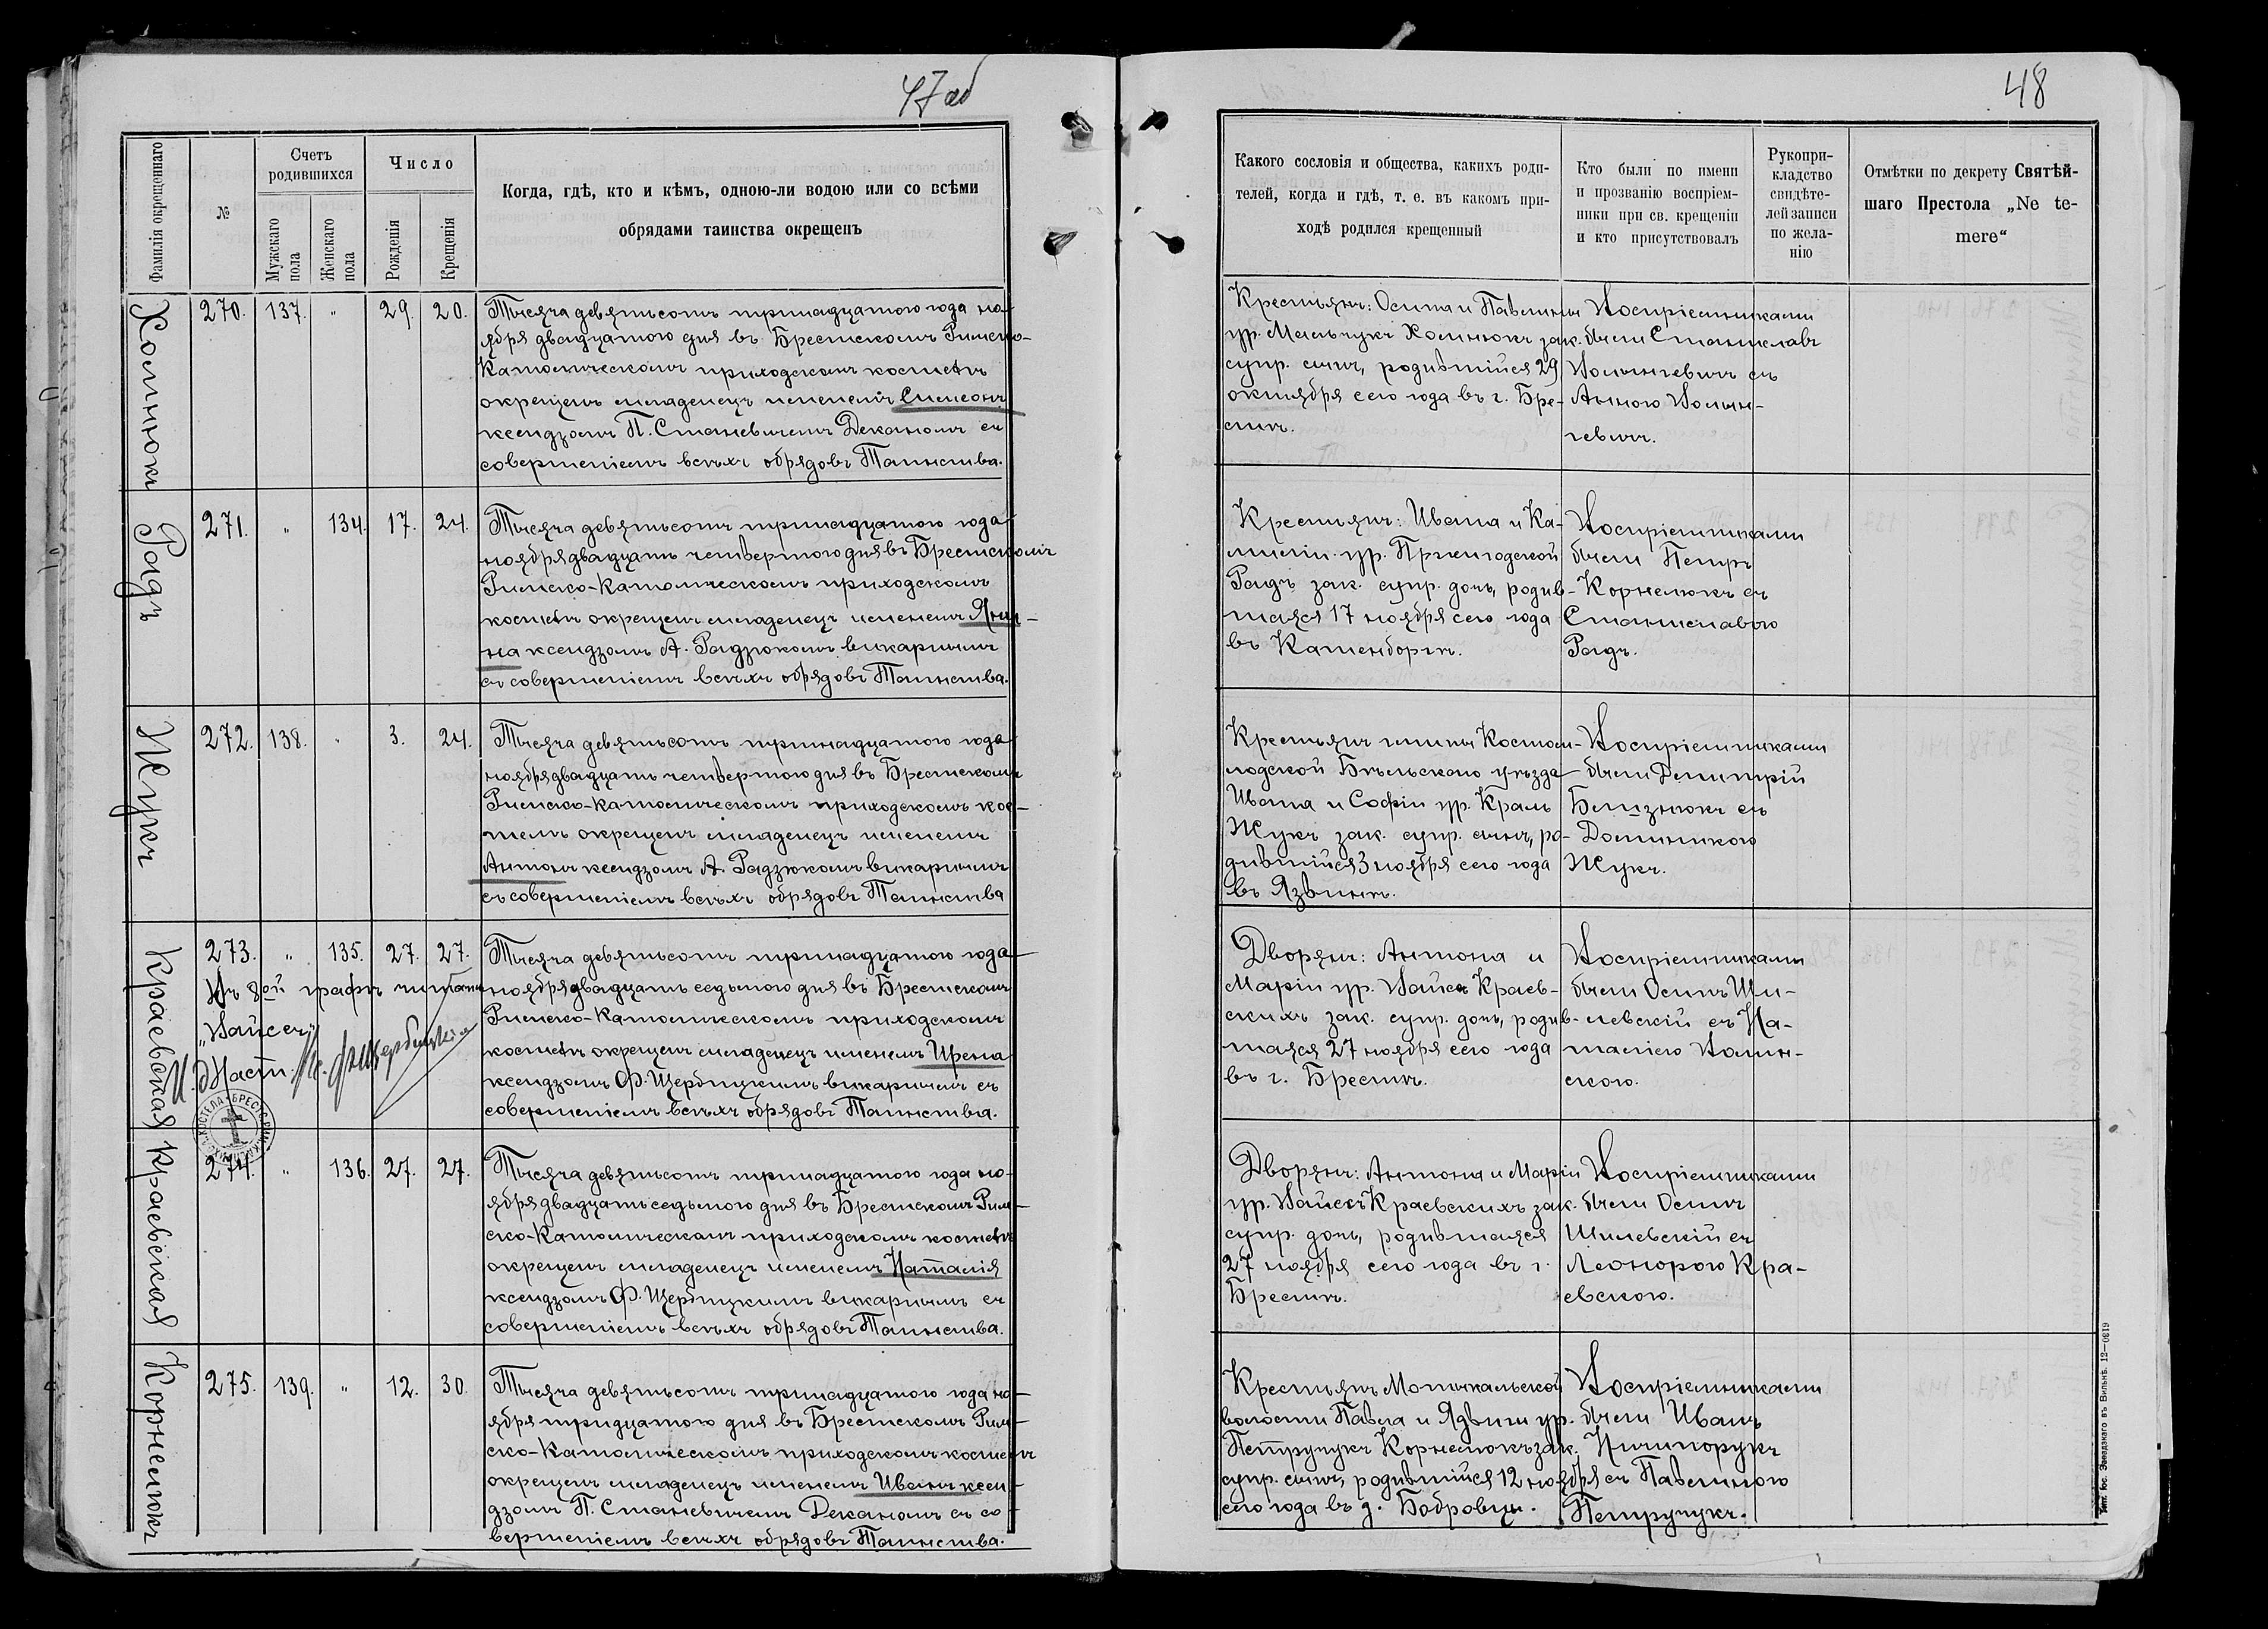 47 об
Фамилія окрещеннаго
№
Счетъ
родившихся
Мужскаго
пола
Женскаго
пола
Число
Рожденія
Крещенія
Когда, гдѣ, кто и кѣмъ, одною-ли водою или со всѣми
обрядами таинства окрещенъ
Хомнюкъ
270. 137. " 29. 20.
Тысяча девятьсотъ тринадцатого года но-
ября двадцатого дня въ Брестскомъ Римско-
Католическомъ приходскомъ костелѣ
окрещенъ младенецъ именемъ Симеонъ
ксендзомъ П. Станевичемъ Деканомъ съ
совершеніемъ всѣхъ обрядовъ Таинства.
Радъ
271. " 134. 17. 24.
Тысяча девятьсотъ тринадцатого года
ноября двадцать четвертого дня въ Брестскомъ
Римско-Католическомъ приходскомъ
костелѣ окрещенъ младенецъ именемъ Яни-
на ксендзомъ А. Радзюкомъ викарнымъ
съ совершеніемъ всѣхъ обрядовъ Таинства.
Жукъ
272. 138. " 3. 24.
Тысяча девятьсотъ тринадцатого года
ноября двадцать четвертого дня въ Брестскомъ
Римско-Католическомъ приходскомъ кос-
телѣ окрещенъ младенецъ именемъ
Антонъ ксендзомъ А. Радзюкомъ викарнымъ
съ совершеніемъ всѣхъ обрядовъ Таинства
Краевская
273. " 135. 27. 27.
Въ 8ой графѣ читать
„Вайсъ"
Тысяча девятьсотъ тринадцатого года
ноября двадцать седьмого дня въ Брестскомъ
Римско-Католическомъ приходскомъ
костелѣ окрещенъ младенецъ именемъ Ирена
ксендзомъ Ф. Щербицкимъ викарнымъ съ
совершеніемъ всѣхъ обрядовъ Таинства.
Краевская
274. " 136. 27. 27.
Тысяча девятьсотъ тринадцатого года но-
ября двадцать седьмого дня въ Брестскомъ Рим-
ско-Католическомъ приходскомъ костелѣ
окрещенъ младенецъ именемъ Наталія
ксендзомъ Ф. Щербицкимъ викарнымъ съ
совершеніемъ всѣхъ обрядовъ Таинства.
Корнелюкъ
275. 139. " 12. 30.
Тысяча девятьсотъ тринадцатого года но-
ября тридцатого дня въ Брестскомъ Рим-
ско-Католическомъ приходскомъ костелѣ
окрещенъ младенецъ именемъ Иванъ ксен-
дзомъ П. Станевичемъ Деканомъ съ со-
вершеніемъ всѣхъ обрядовъ Таинства.
48
Какого сословія и общества, какихъ роди-
телей, когда и гдѣ, т. е. въ какомъ при-
ходѣ родился крещенный
Кто были по имени
и прозванію воспріем-
ники при св. крещеніи
и кто присутствовалъ
Рукопри-
кладство
свидѣте-
лей записи
по жела-
нію
Отмѣтки по декрету Святѣй-
шаго Престола „Ne te-
mere"
Крестьянъ: Осипа и Павлины
ур. Мельчукъ Хомнюкъ зак.
супр. сынъ, родившійся 29
октября сего года въ г. Бре-
стѣ.
Воспріемниками
были Станиславъ
Волынчевичъ съ
Анною Волын-
чевичъ.
Крестьянъ: Ивана и Ка-
миліи ур. Пржигодской
Радъ зак. супр. дочь, родив-
шаяся 17 ноября сего года
въ Каменборгѣ.
Воспріемниками
были Петръ
Корнелюкъ съ
Станиславою
Радъ.
Крестьянъ гмины Костом-
лодской Бѣльского уѣзда
Ивана и Софіи ур. Краль
Жукъ зак. супр. сынъ, ро-
дившійся 3 ноября сего года
въ Язвинѣ.
Воспріемниками
были Демитрій
Бѣгзнюкъ съ
Доминикою
Жукъ.
Дворянъ: Антона и
Маріи ур. Вайсъ Краев-
скихъ зак. супр. дочь, родив-
шаяся 27 ноября сего года
въ г. Брестѣ.
Воспріемниками
были Осипъ Ши-
левскій съ На-
таліею Волын-
скою.
Дворянъ: Антона и Маріи
ур. Вайсъ Краевскихъ зак.
супр. дочь, родившаяся
27 ноября сего года въ г.
Брестѣ.
Воспріемниками
были Осипъ
Шилевскій съ
Леонорою Кра-
евскою.
Крестьянъ Мотыкальской
волости Павла и Ядвиги ур.
Петручукъ Корнелюкъ зак.
супр. сынъ, родившійся 12 ноября
сего года въ д. Бобровцы.
Воспріемниками
были Иванъ
Ничипорукъ
съ Павлиною
Петручукъ.
Тип. Іос. Завадзкаго въ Вильнѣ. 12—0819